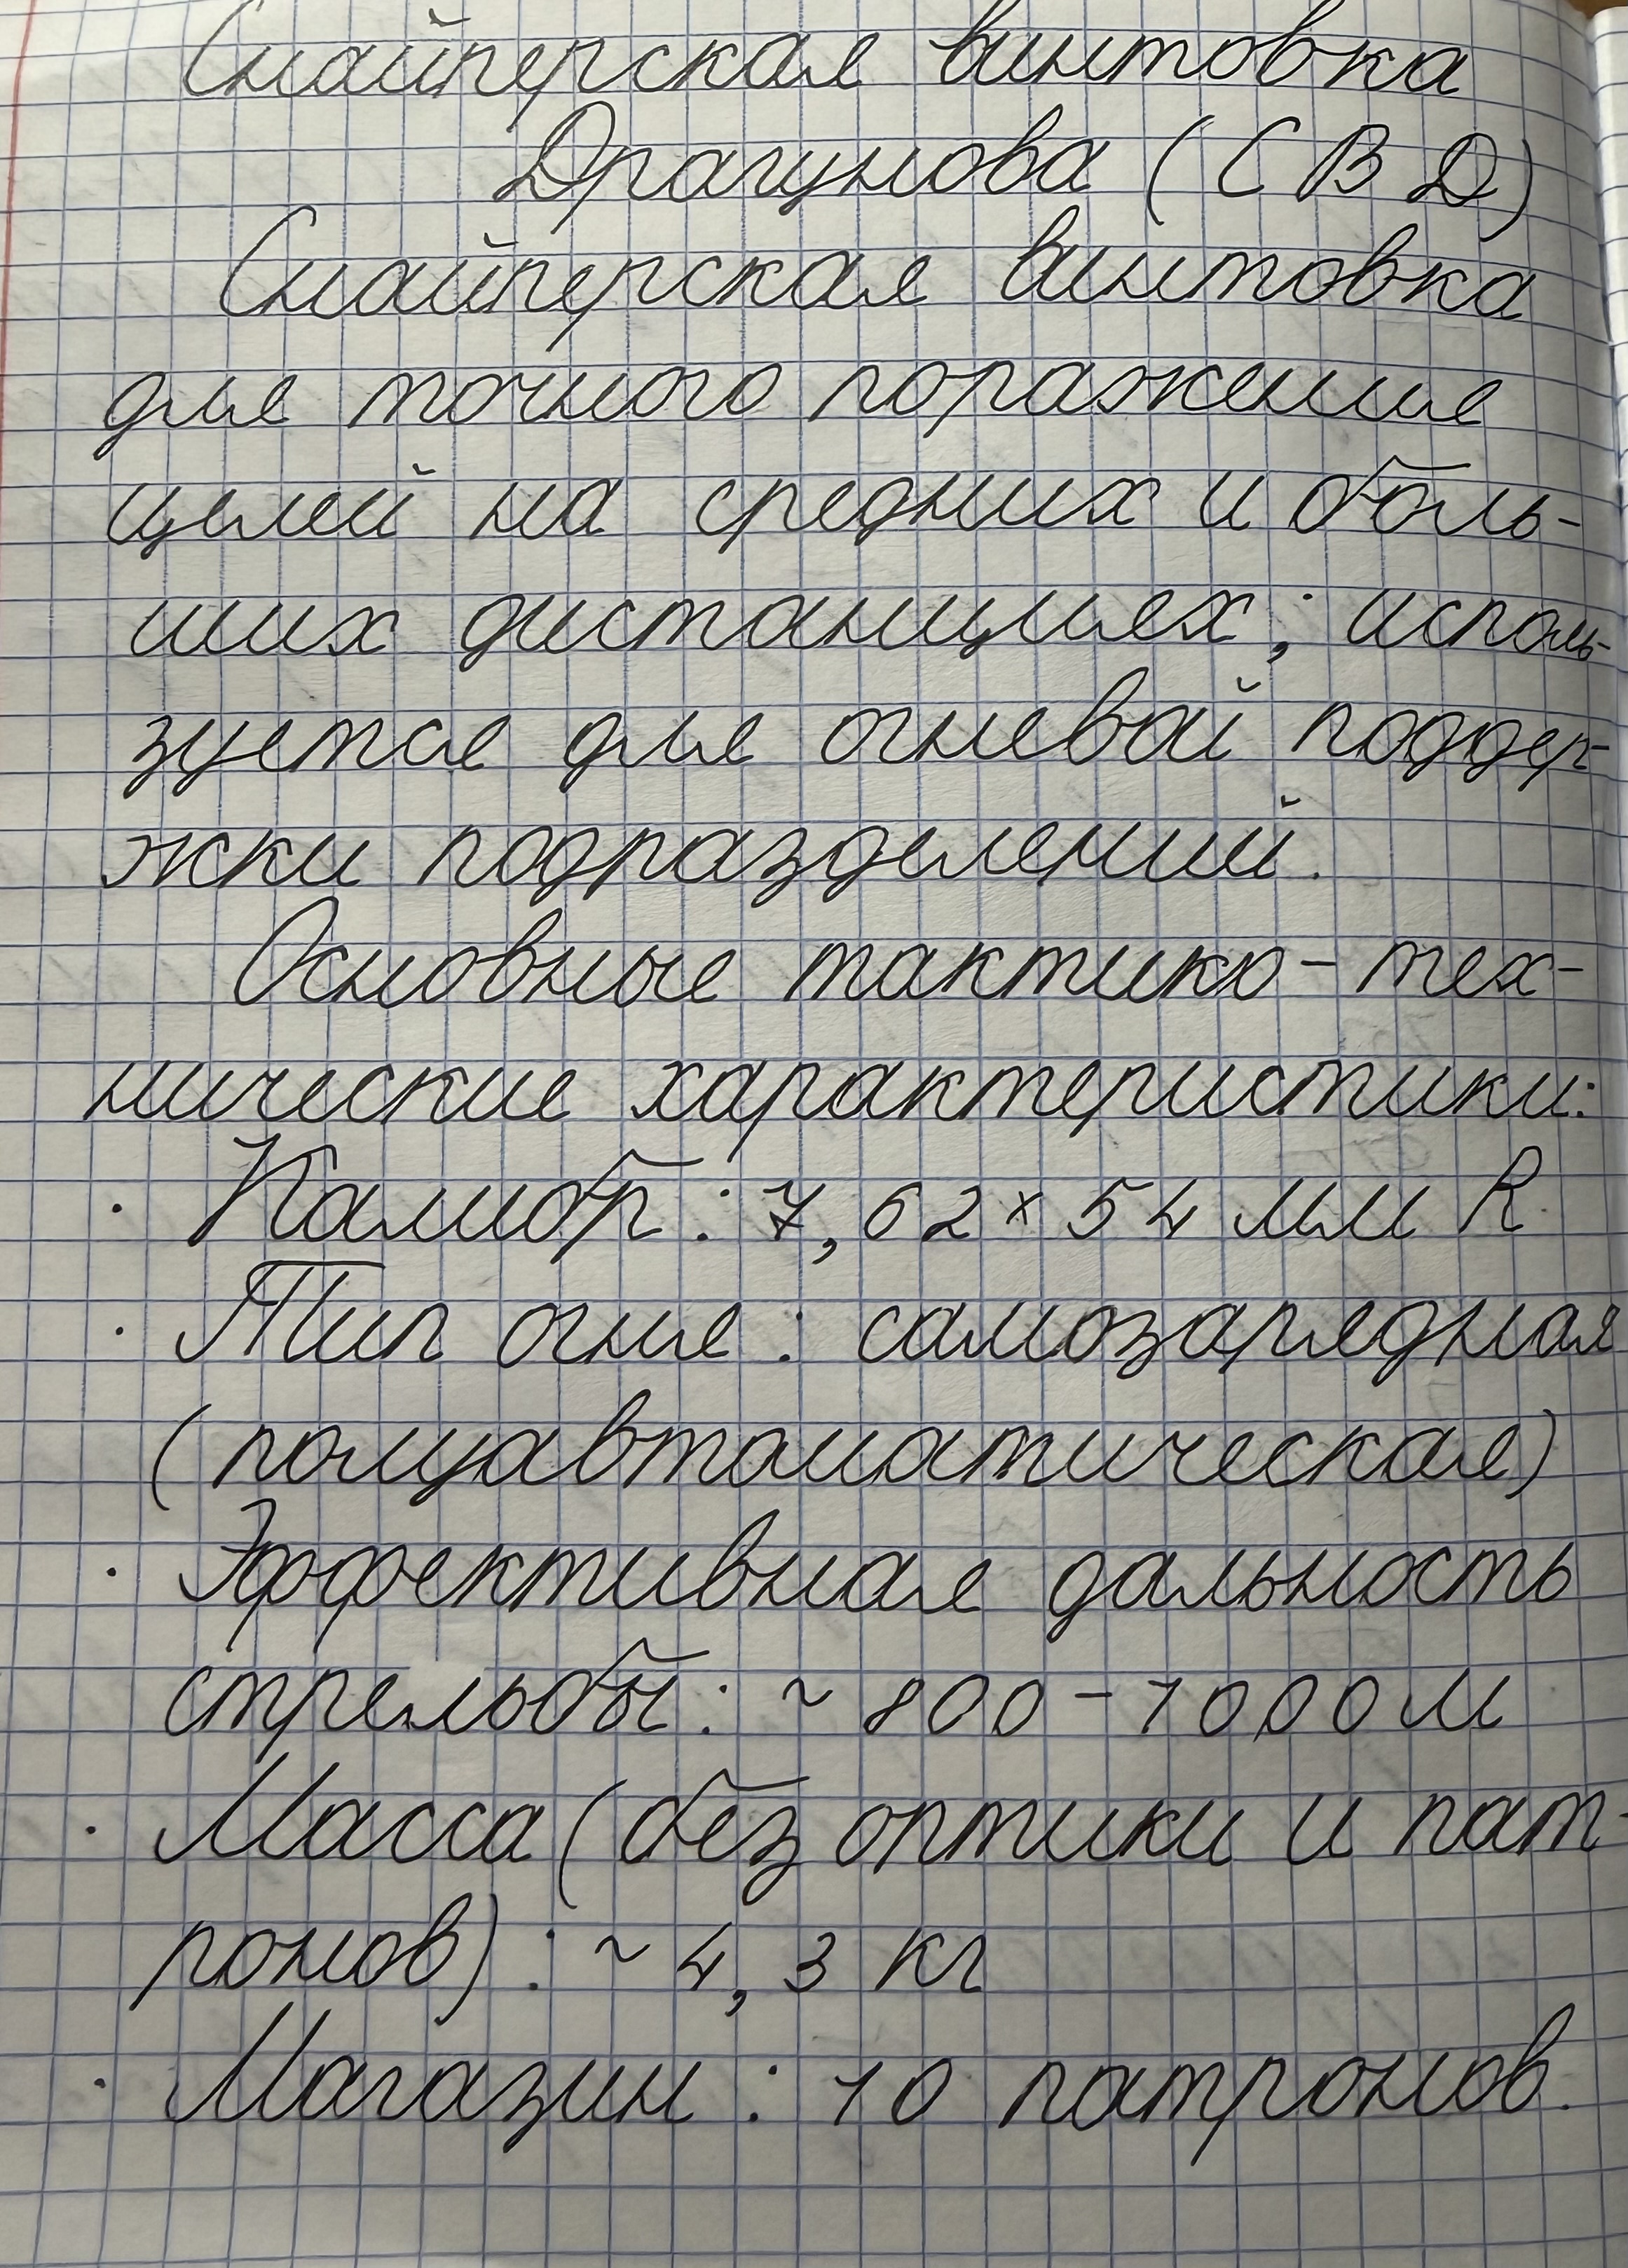 Снайперская винтовка
Драгунова (СВД)
Снайперская винтовка
для точного поражения
целей на средних и боль-
ших дистанциях; исполь-
зуется для огневой поддер-
жки подразделений.
Основные тактико-тех-
нические характеристики:
· Калибр: 7,62×54 мм R
· Тип огня: самозарядная
(полуавтоматическая)
· Эффективная дальность
стрельбы: ~ 800-1000 м
· Масса (без оптики и пат-
ронов): ~ 4,3 кг
· Магазин: 10 патронов.